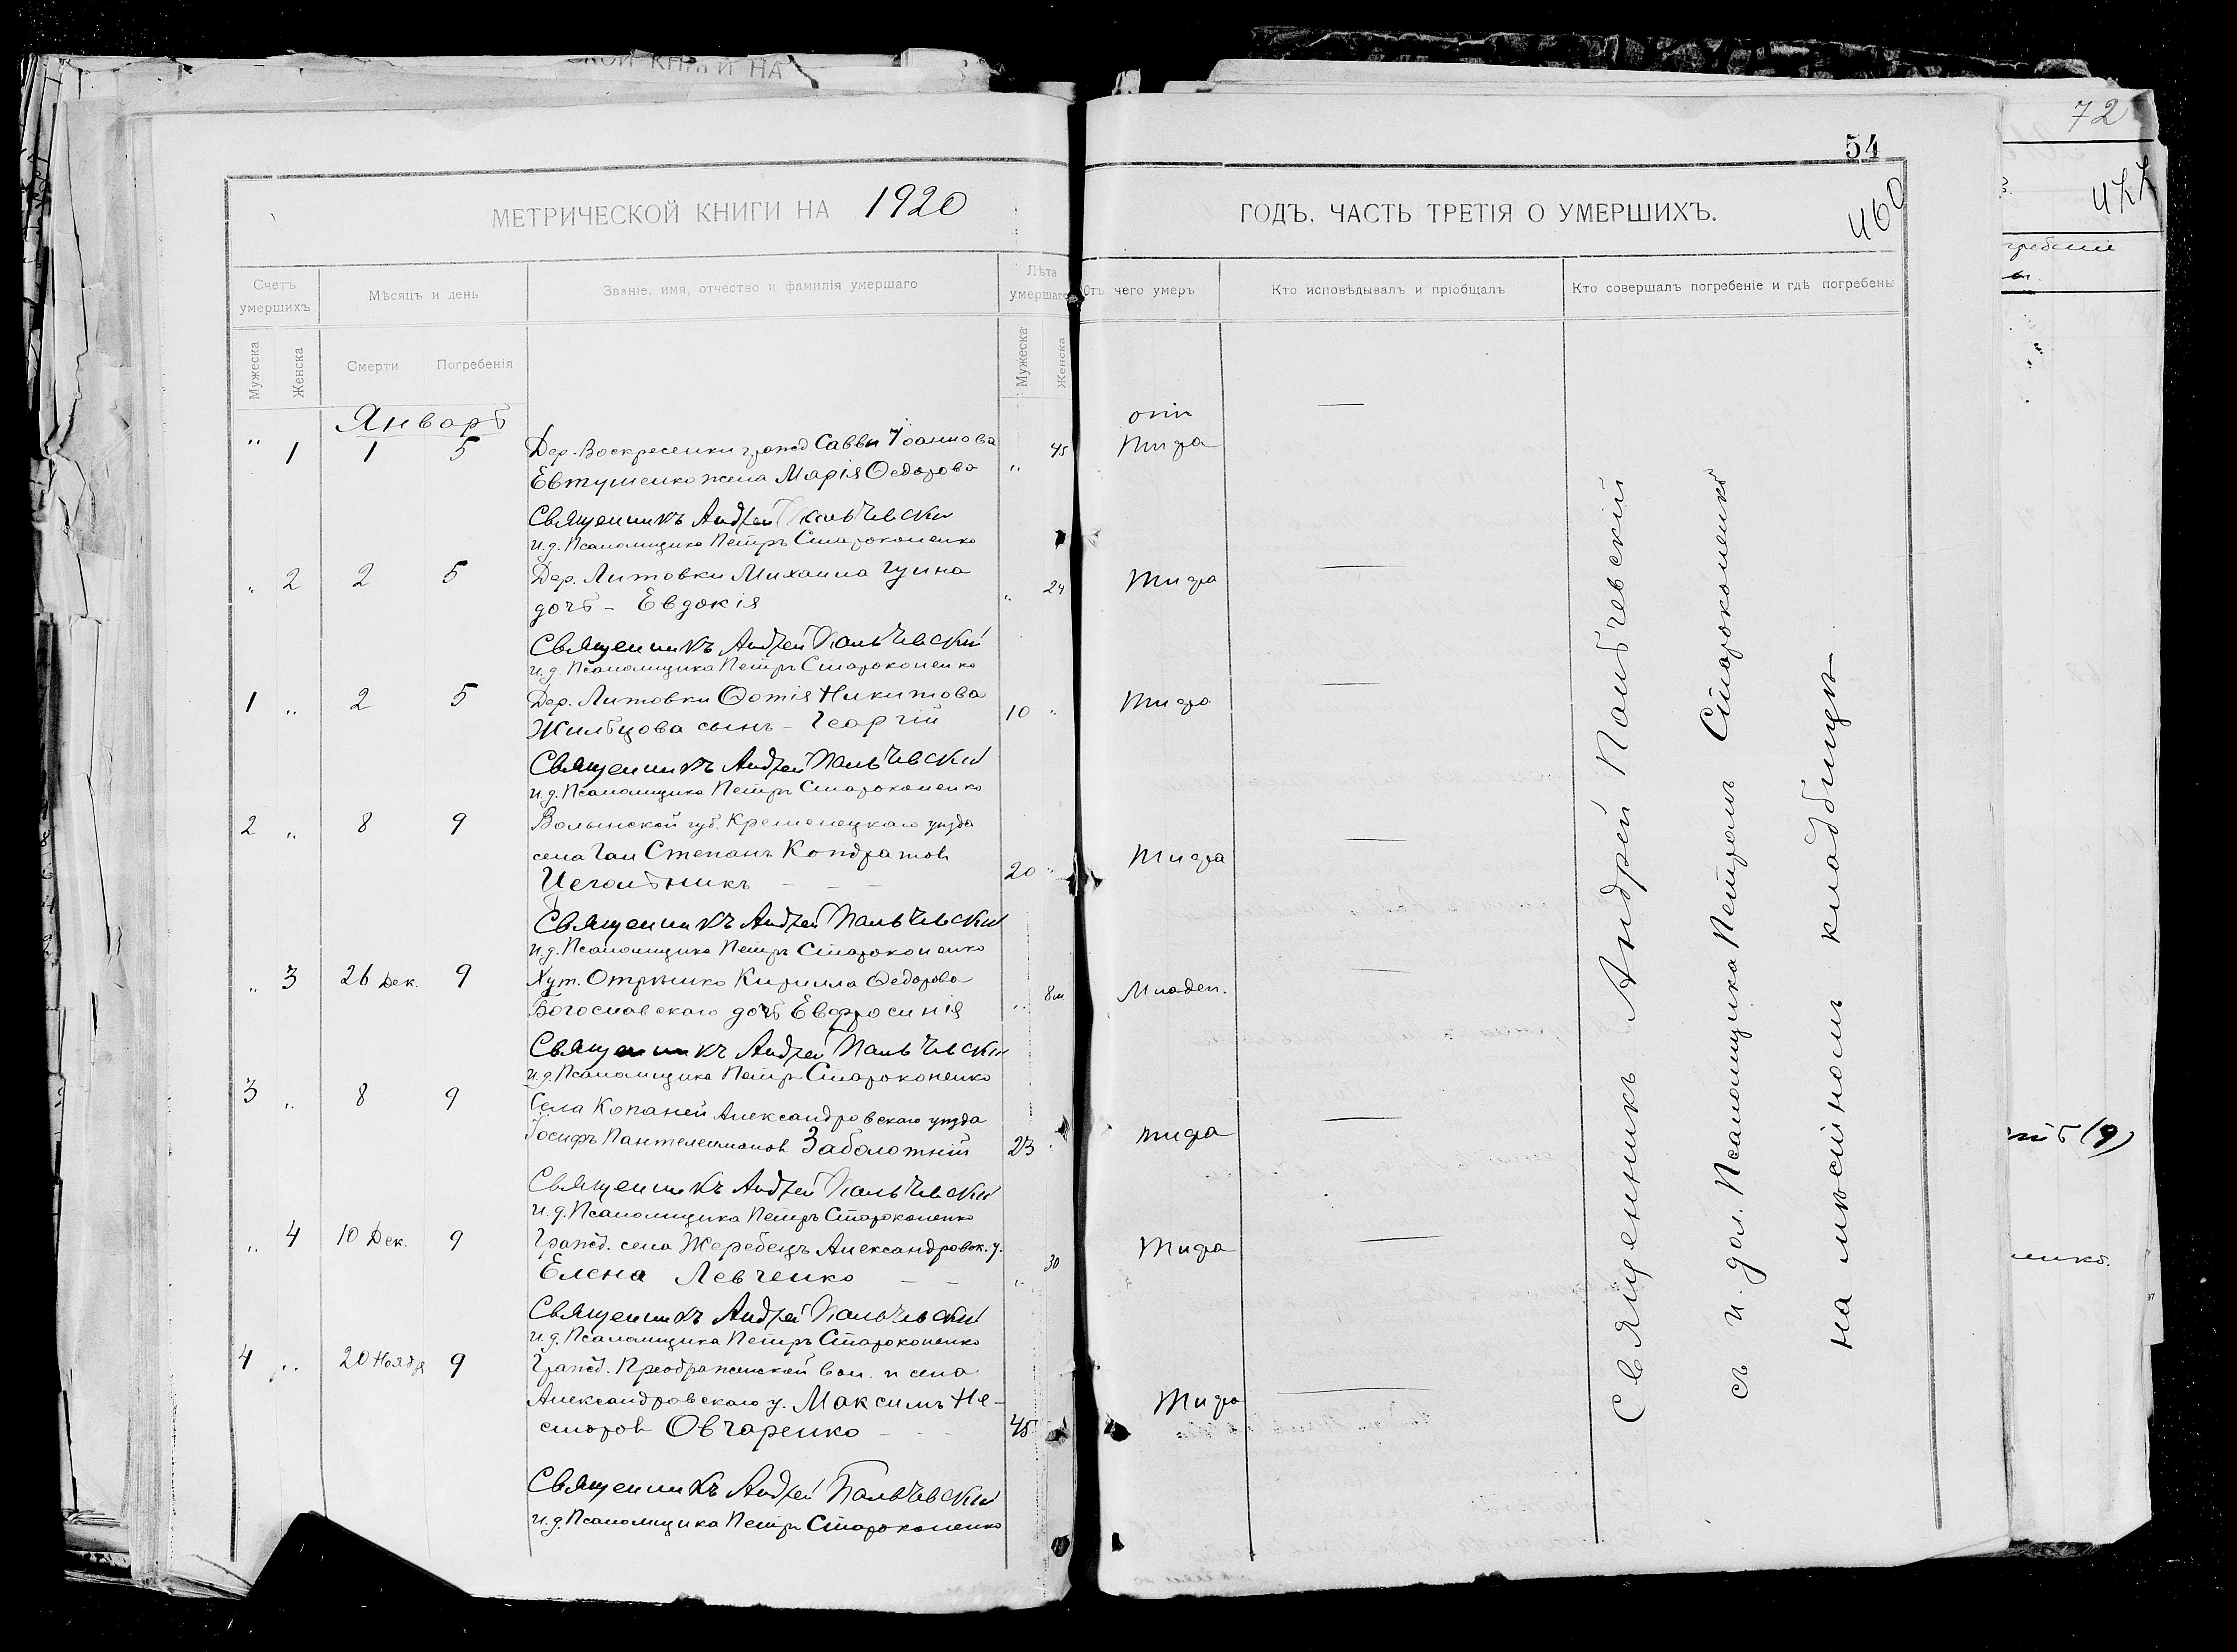 СКОЙ КНИГИ НА
72
54
МЕТРИЧЕСКОЙ КНИГИ НА 1920
ГОДЪ, ЧАСТЬ ТРЕТІЯ О УМЕРШИХЪ.
460
Счетъ умершихъ
Мѣсяцъ и день
Званіе, имя, отчество и фамилія умершаго
Лѣта умершаго
Отъ чего умеръ
Кто исповѣдывалъ и пріобщалъ
Кто совершалъ погребеніе и гдѣ погребены
Мужеска
Женска
Смерти
Погребенія
Мужеска
Женска
Январь
отъ
" 1 1 5 Дер. Воскресенки гражд Саввы Іоаннова " 45 Тифа
Евтушенко жена Марія Ѳедорова
Священникъ Андрей Пальчевскій
и.д. Псаломщика Петръ Староконенко
" 2 2 5 Дер. Литовки Михаила Гуина " 24 Тифа
дочь - Евдокія
Священникъ Андрей Пальчевскій
и.д. Псаломщика Петръ Староконенко
1 " 2 5 Дер. Литовки Ѳотія Никитова 10 " Тифа
Жильцова сынъ - Георгій
Священникъ Андрей Пальчевскій
и.д. Псаломщика Петръ Староконенко
2 " 8 9 Волынской губ. Кременецкаго уѣзда
села Гаи Степанъ Кондратовъ 20 " Тифа
Священникъ Андрей Пальчевскій
и.д. Псаломщика Петръ Староконенко
" 3 26 Дек. 9 Хут. Кирилла Ѳедорова " 8м Младен.
Богославскаго дочь Евфросинія
Священникъ Андрей Пальчевскій
и.д. Псаломщика Петръ Староконенко
3 " 8 9 Села Копаней Александровскаго уѣзда
Іосифъ Пантелеимоновъ Заболотній 23 " тифа
Священникъ Андрей Пальчевскій
и.д. Псаломщика Петръ Староконенко
" 4 10 Дек. 9 Гражд. села Жеребецъ Александровск. у. " 30 Тифа
Елена Левченко
Священникъ Андрей Пальчевскій
и.д. Псаломщика Петръ Староконенко
4 " 20 Ноябр 9 Гражд. Преображенской вол. и села
Александровскаго у. Максимъ Не- Тифа
сторовъ Овчаренко 45
Священникъ Андрей Пальчевскій
и.д. Псаломщика Петръ Староконенко
Священникъ Андрей Пальчевскій
съ и. дол. Псаломщика Петромъ Староконенко
на мѣстномъ кладбищѣ